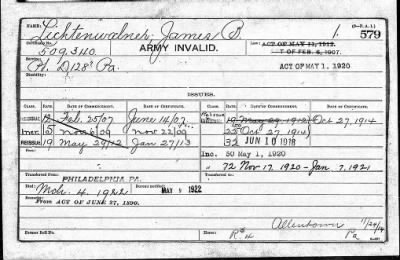 NAME: Lichtenwalner, James B. 1. 579
Certificate No. 509,340. ARMY INVALID. Law: ACT OF MAY 11, 1912.
ACT OF FEB. 6, 1907.
Service: Pa. ACT OF MAY 1, 1920
ISSUES.
CLASS. RATE. DATE OF COMMENCEMENT. DATE OF CERTIFICATE. CLASS. RATE. DATE OF COMMENCEMENT. DATE OF CERTIFICATE.
12 Feb. 25/07 June 14/07 19 May 29 1912 Oct 27, 1914
Incr. 15 Nov 6/09 Nov 22/09 25 Oct 27, 1914
REISSUE 19 May 29/12 Jan 27/13 32 JUN 10 1918
Inc. 50 May 1, 1920
" 72 Nov 17, 1920 - Jan. 7, 1921
Transferred from PHILADELPHIA PA. Transferred from
Died Mch. 4, 1922 Bureau notified MAY 9 1922
Former Roll No. From ACT OF JUNE 27, 1890.
Home Roll No. R#4 Allentown Pa